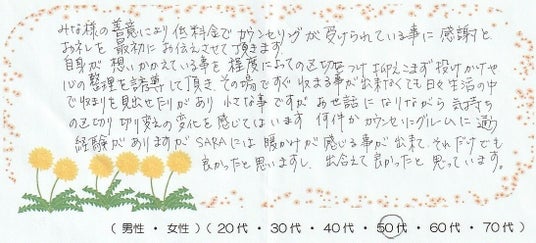 みな様の善意により低料金でカウンセリングが受けられている事に 感謝と
お礼を 最初にお伝えさせて頂きます
自身が 想いかかえている事を 程度によっての区切をつけ 抑えこまず 投げかけや
心の整理を誘導して頂き、その場ですぐ 収まる事が出来なくても 日々生活の中
で収まりを見出せたりがあり 小さな事ですが お世話になりながら 気持ち
の区切り 切り変えの変化を感じてはいます 何件かカウンセリングルームに通う
経験がありますが SARAには 暖かみが感じる事が出来、それだけでも
良かったと思いますし、出会えて良かったと思っています。
( 男性 ・ 女性 ) ( 20代 ・ 30代 ・ 40代 ・ 50代 ・ 60代 ・ 70代 )